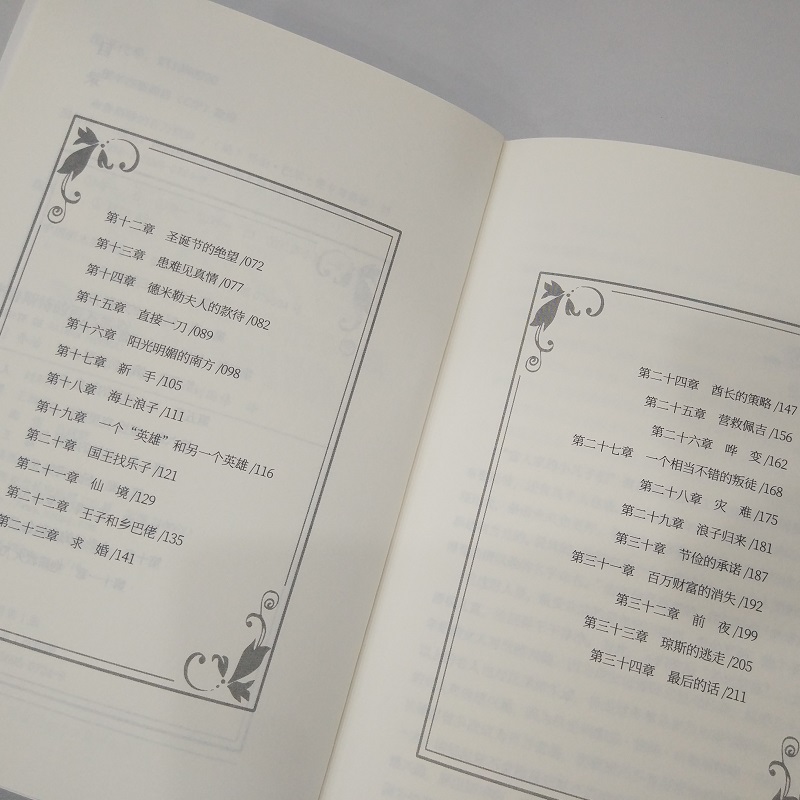 第十二章 圣诞节的绝望 /072
第十三章 患难见真情 /077
第十四章 德米勒夫人的款待 /082
第十五章 直接一刀 /089
第十六章 阳光明媚的南方 /098
第十七章 新 手 /105
第十八章 海上浪子 /111
第十九章 一个“英雄”和另一个英雄 /116
第二十章 国王找乐子 /121
第二十一章 仙 境 /129
第二十二章 王子和乡巴佬 /135
第二十三章 求 婚 /141
第二十四章 酋长的策略 /147
第二十五章 营救佩吉 /156
第二十六章 哗 变 /162
第二十七章 一个相当不错的叛徒 /168
第二十八章 灾 难 /175
第二十九章 浪子归来 /181
第三十章 节俭的承诺 /187
第三十一章 百万财富的消失 /192
第三十二章 前 夜 /199
第三十三章 琼斯的逃走 /205
第三十四章 最后的话 /211